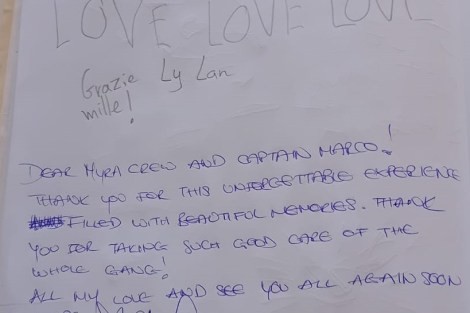 LOVE LOVE LOVE
Grazie Ly Lan
mille!
DEAR MYRA CREW AND CAPTAIN MARCO!
THANK YOU FOR THIS UNFORGETTABLE EXPERIENCE
FILLED WITH BEAUTIFUL MEMORIES. THANK
YOU FOR TAKING SUCH GOOD CARE OF THE
WHOLE GANG!
ALL MY LOVE AND SEE YOU ALL AGAIN SOON